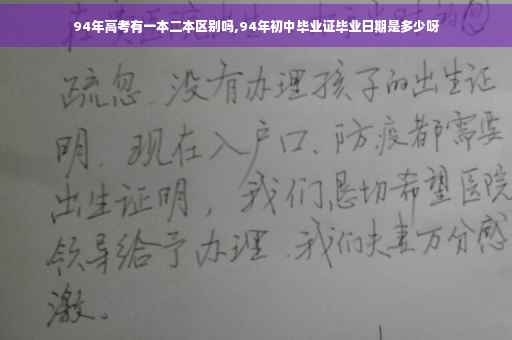 94年高考有一本二本区别吗,94年初中毕业证毕业日期是多少呀
疏忽、没有办理孩子的出生证
明、现在入户口、防疫都需要
出生证明，我们恳切希望医院
领导给予办理、我们夫妻万分感
激。